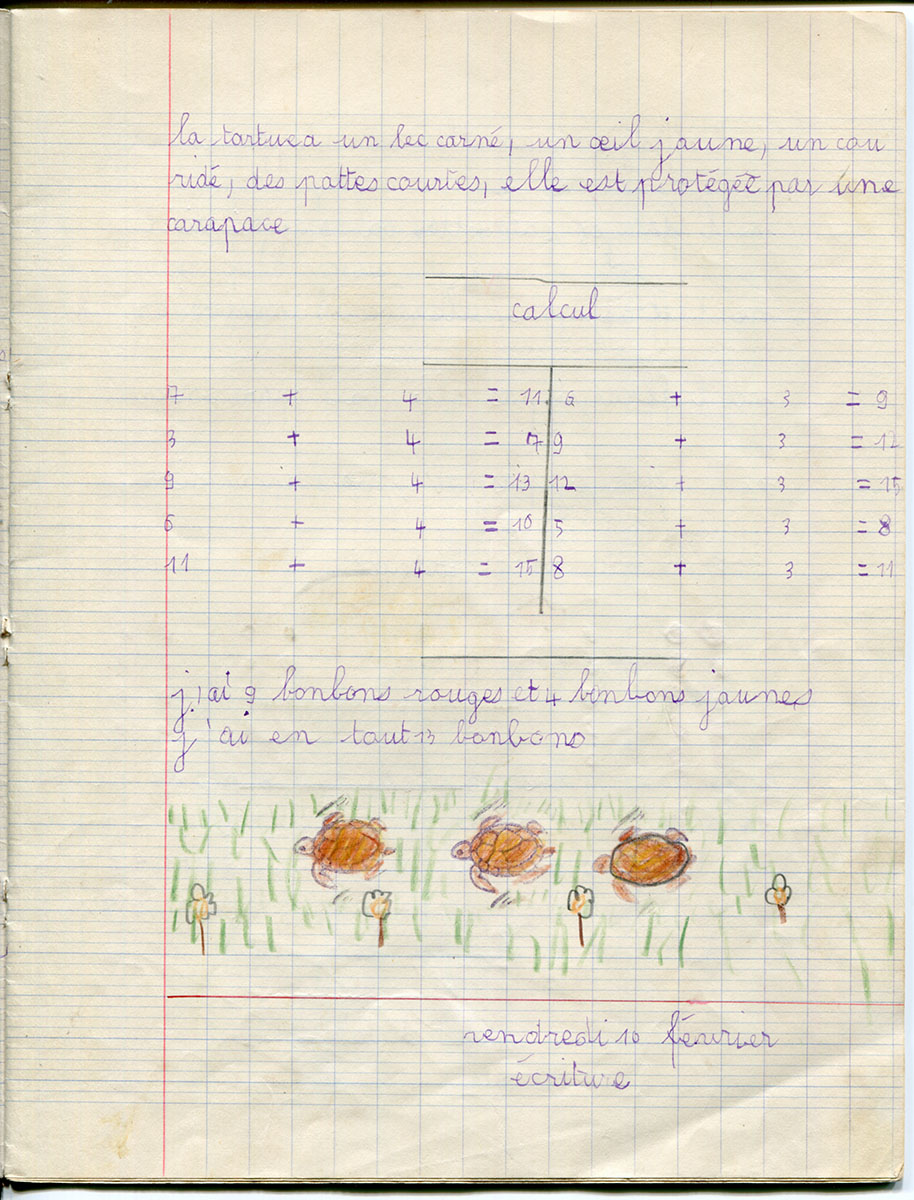 la tortue a un bec corné, un œil jaune, un cou
ridé, des pattes courtes, elle est protégée par une
carapace
calcul
7 + 4 = 11 6 + 3 = 9
3 + 4 = 7 9 + 3 = 12
9 + 4 = 13 12 + 3 = 15
6 + 4 = 10 5 + 3 = 8
11 + 4 = 15 8 + 3 = 11
j'ai 9 bonbons rouges et 4 bonbons jaunes
j'ai en tout 13 bonbons
vendredi 16 février
écriture